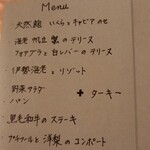 Menu
天然鯛 いくらとキャビアのせ
海老 帆立 蟹のテリーヌ
フォアグラと白レバーのテリーヌ
伊勢海老とリゾート
野菜サラダ + ターキー
パン
黒毛和牛のステーキ
アルコールと洋梨のコンポート